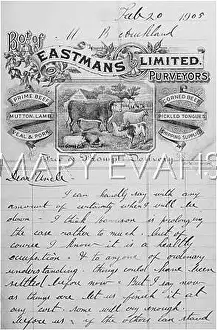 Feb 20 1905
M B. Strickland
Bot of
EASTMANS LIMITED.
PURVEYORS
PRIME BEEF
MUTTON, LAMB,
VEAL & PORK
CORNED BEEF
PICKLED TONGUES
MARY EVANS
Prompt Delivery
Dear Uncle
I can hardly say with any
amount of certainty when I will be
down - I think is prolonging
the case rather to much. But of
course I know it is a healthy
occupation & to any one of ordinary
understanding things could have been
settled before now. But I say now
as things are let us finish it at
any cost some will say enough
before us if the others can stand